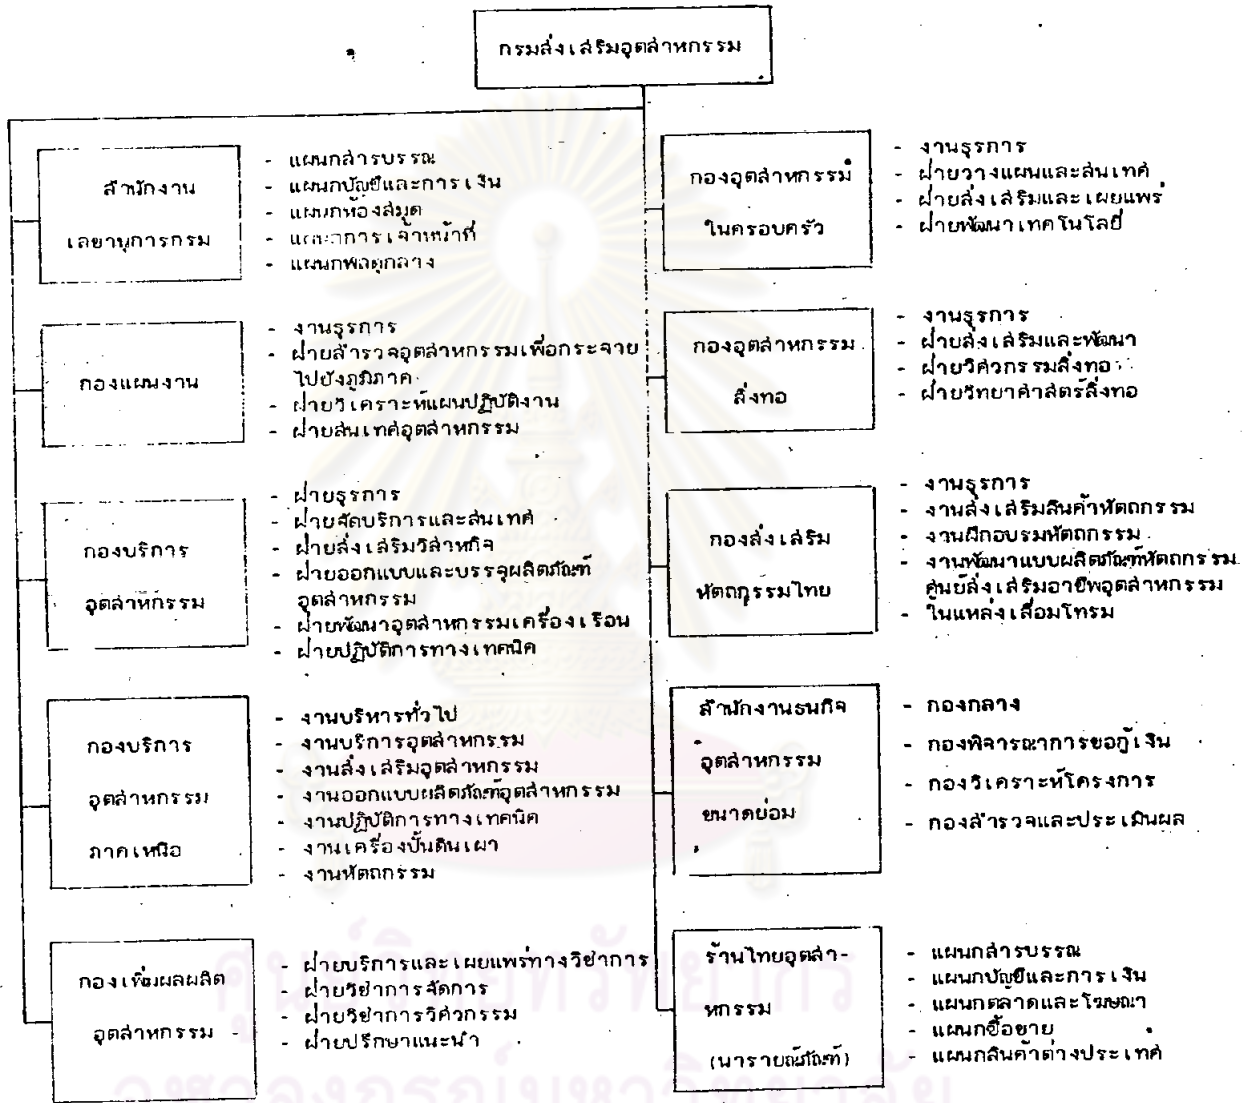 กรมส่งเสริมอุตสาหกรรม
สำนักงาน
เลขานุการกรม
- แผนกสารบรรณ
- แผนกบัญชีและการเงิน
- แผนกห้องสมุด
- แผนกการเจ้าหน้าที่
- แผนกพัสดุกลาง
กองแผนงาน
- งานธุรการ
- ฝ่ายสำรวจอุตสาหกรรมเพื่อกระจาย
ไปยังภูมิภาค
- ฝ่ายวิเคราะห์แผนปฏิบัติงาน
- ฝ่ายสนเทศอุตสาหกรรม
กองบริการ
อุตสาหกรรม
- ฝ่ายธุรการ
- ฝ่ายจัดบริการและสนเทศ
- ฝ่ายส่งเสริมวิสาหกิจ
- ฝ่ายออกแบบและบรรจุผลิตภัณฑ์
อุตสาหกรรม
- ฝ่ายพัฒนาอุตสาหกรรมเครื่องเรือน
- ฝ่ายปฏิบัติการทางเทคนิค
กองบริการ
อุตสาหกรรม
ภาคเหนือ
- งานบริหารทั่วไป
- งานบริการอุตสาหกรรม
- งานส่งเสริมอุตสาหกรรม
- งานออกแบบผลิตภัณฑ์อุตสาหกรรม
- งานปฏิบัติการทางเทคนิค
- งานเครื่องปั้นดินเผา
- งานหัตถกรรม
กองเพิ่มผลผลิต
อุตสาหกรรม
- ฝ่ายบริการและเผยแพร่ทางวิชาการ
- ฝ่ายวิชาการจัดการ
- ฝ่ายวิชาการวิศวกรรม
- ฝ่ายปรึกษาแนะนำ
กองอุตสาหกรรม
ในครอบครัว
- งานธุรการ
- ฝ่ายวางแผนและสนเทศ
- ฝ่ายส่งเสริมและเผยแพร่
- ฝ่ายพัฒนาเทคโนโลยี่
กองอุตสาหกรรม
สิ่งทอ
- งานธุรการ
- ฝ่ายส่งเสริมและพัฒนา
- ฝ่ายวิศวกรรมสิ่งทอ
- ฝ่ายวิทยาศาสตร์สิ่งทอ
กองส่งเสริม
หัตถกรรมไทย
- งานธุรการ
- งานส่งเสริมสินค้าหัตถกรรม
- งานฝึกอบรมหัตถกรรม
- งานพัฒนาแบบผลิตภัณฑ์หัตถกรรม
ศูนย์ส่งเสริมอาชีพอุตสาหกรรม
- ในแหล่งเสื่อมโทรม
สำนักงานธนกิจ
อุตสาหกรรม
ขนาดย่อม
- กองกลาง
- กองพิจารณาการขอกู้เงิน
- กองวิเคราะห์โครงการ
- กองสำรวจและประเมินผล
ร้านไทยอุตสา-
หกรรม
(นารายณ์ภัณฑ์)
- แผนกสารบรรณ
- แผนกบัญชีและการเงิน
- แผนกตลาดและโฆษณา
- แผนกซื้อขาย
- แผนกสินค้าต่างประเทศ
ศูนย์วิทยทรัพยากร
จุฬาลงกรณ์มหาวิทยาลัย